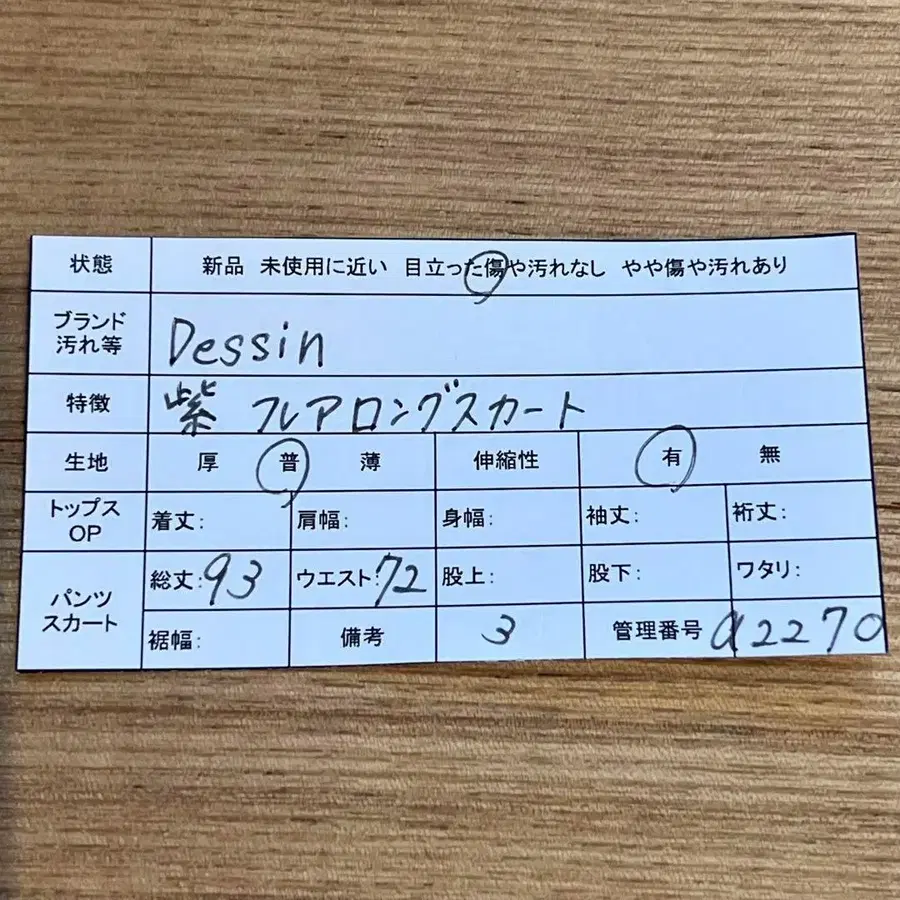 状態 新品 未使用に近い 目立った傷や汚れなし やや傷や汚れあり
ブランド
汚れ等
Dessin
特徴 紫 フレアロングスカート
生地 厚 普 薄 伸縮性 有 無
トップス
OP
着丈: 肩幅: 身幅: 袖丈: 裄丈:
パンツ
スカート
総丈:93 ウエスト:72 股上: 股下: ワタリ:
裾幅: 備考 3 管理番号 a2270